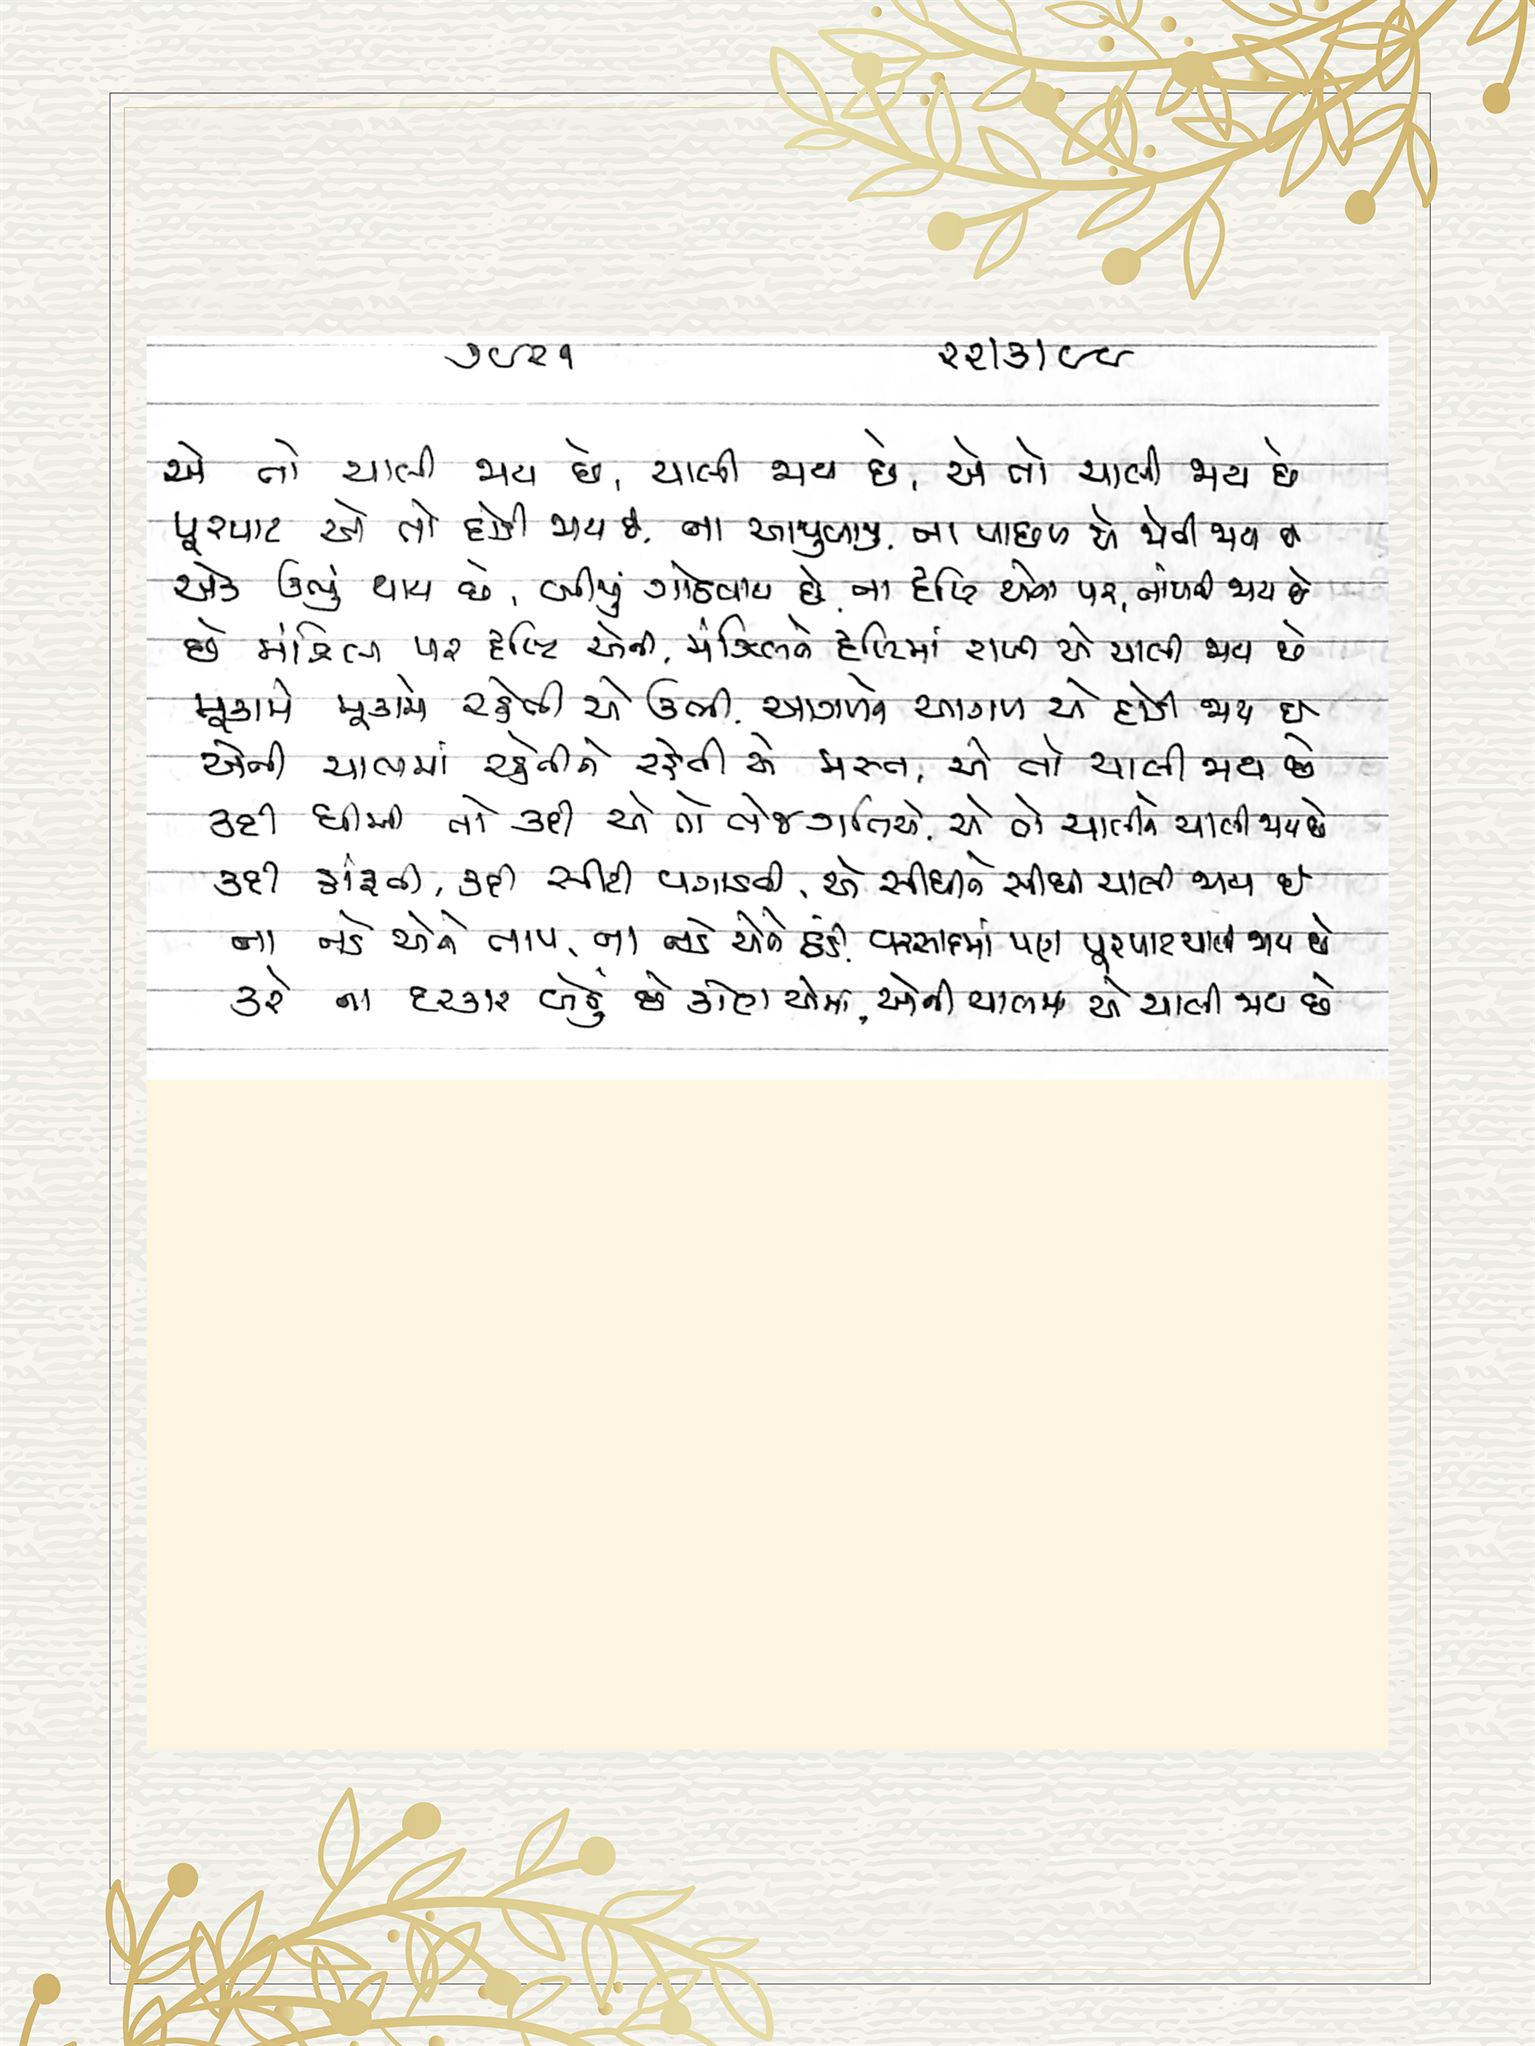 ૭૯૨૧ ૨૨/૩/૯૯
એ તો ચાલી જાય છે, ચાલી જાય છે, એ તો ચાલી જાય છે
પૂરપાટ એ તો દોડી જાય છે, ના આજુબાજુ, ના પાછળ એ જોતી જાય છે
એક ઊભું થાય છે, બીજું ગોઠવાય છે, ના દૃષ્ટિ એના પર, નાંખતી જાય છે
છે મંઝિલ પર દૃષ્ટિ એની, મંઝિલને દૃષ્ટિમાં રાખી એ ચાલી જાય છે
મુકામે મુકામે રહેતી એ ઊભી, આગળને આગળ એ દોડી જાય છે
એની ચાલમાં રહેતીને રહેતી એ મસ્ત, એ તો ચાલી જાય છે
કદી ધીમી તો કદી એ તો તેજ ગતિએ, એ તો ચાલીને ચાલી જાય છે
કદી હાંફતી, કદી સીટી વગાડતી, એ સીધીને સીધી ચાલી જાય છે
ના નડે એને તાપ, ના નડે એને ઠંડી, વરસાદમાં પણ પૂરપાટ ચાલી જાય છે
કરે ના દરકાર બેઠું છે કોણ એમાં, એની ચાલમાં એ ચાલી જાય છે